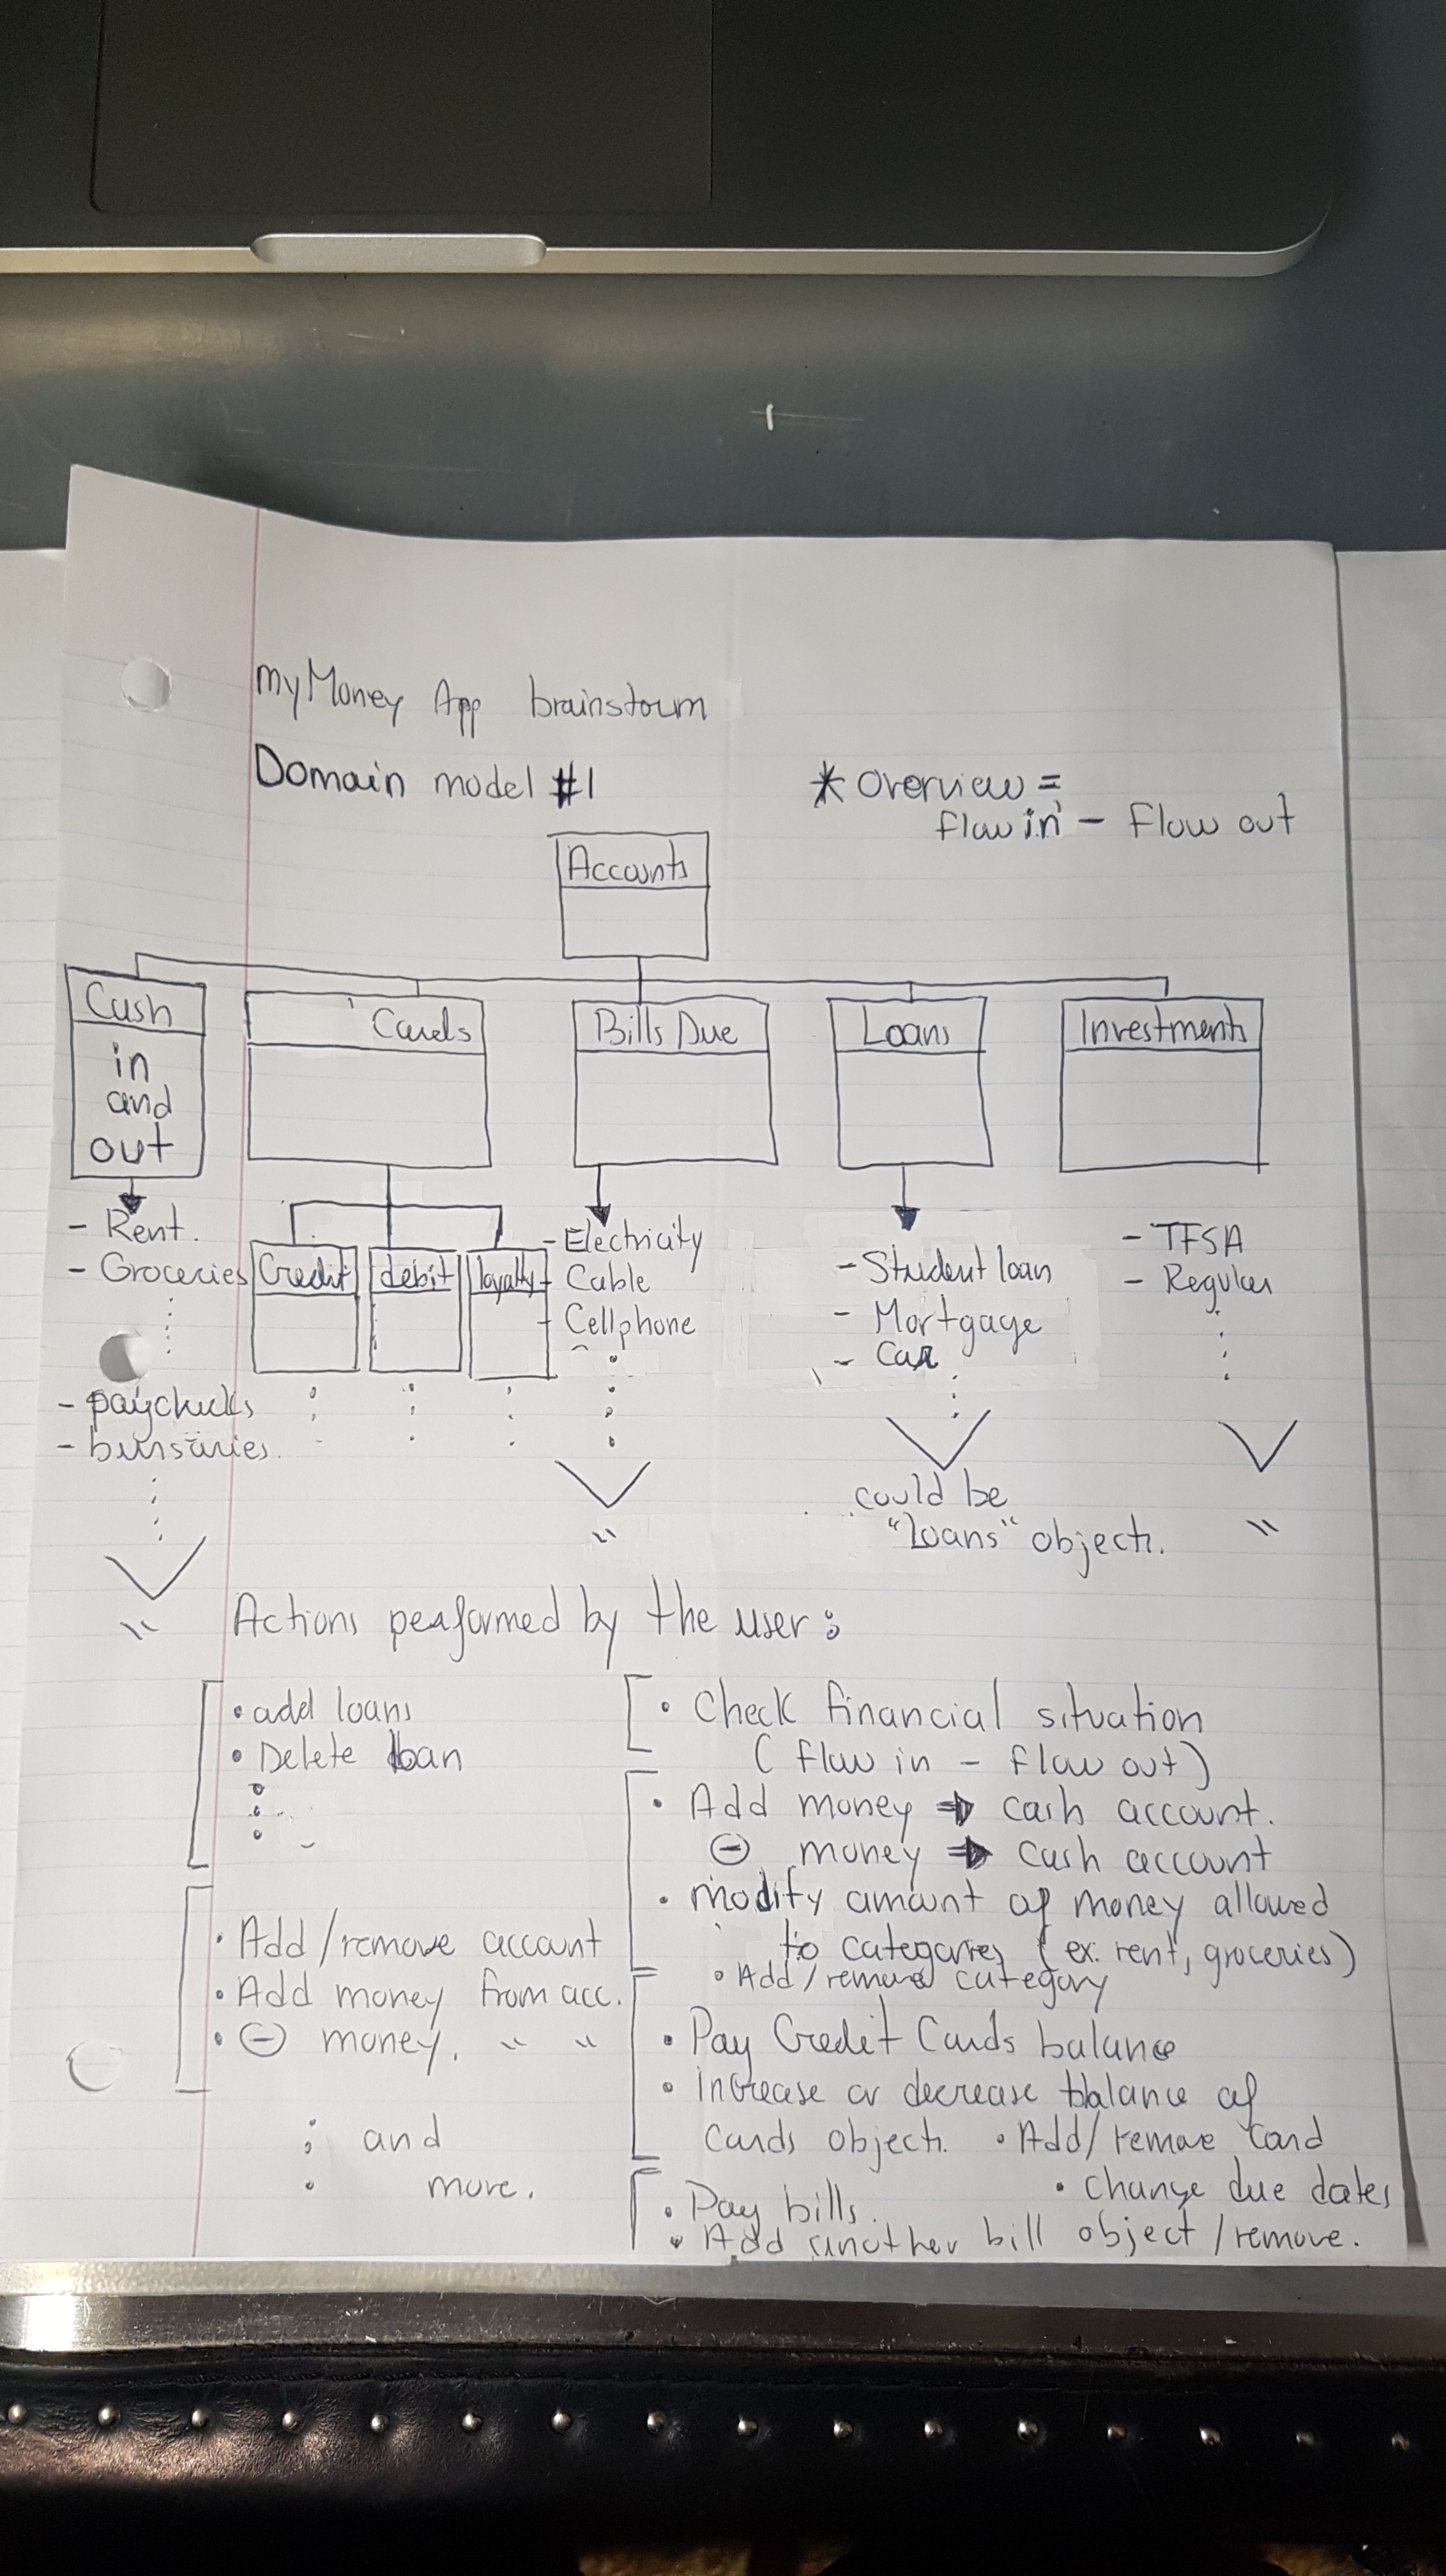 myMoney App brainstorm
Domain model #1
* Overview =
flow in - Flow out
Accounts
Cash
in
and
out
Cards
Bills Due
Loans
Investments
- Rent.
- Groceries
- paychecks
- bursaries.
"
Credit
debit
loyalty
- Electricity
- Cable
- Cellphone
"
- Student loan
- Mortgage
- Car
could be
"loans" object.
- TFSA
- Regular
"
Actions performed by the user:
• add loans
• Delete loan
• Add/remove account
• Add money from acc.
• ⊖ money. " "
and
more.
• Check financial situation
(flow in - flow out)
• Add money ⇒ cash account.
⊖ money ⇒ cash account
• modify amount of money allowed
to categories (ex: rent, groceries)
• Add/remove category
• Pay Credit Cards balance
• increase or decrease balance of
Cards object. • Add/remove Card
• Change due dates
• Pay bills.
• Add another bill object /remove.